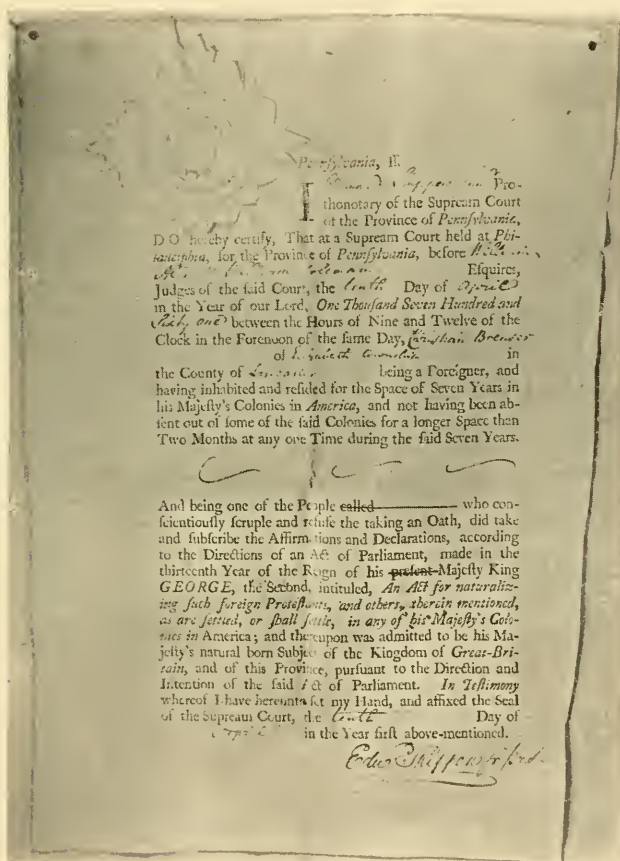 Pennſylvania, ſſ.
I Pro-
thonotary of the Supream Court
of the Province of Pennſylvania,
DO hereby certify, That at a Supream Court held at Phi-
ladelphia, for the Province of Pennſylvania, before William
Coleman Eſquires,
Judges of the ſaid Court, the tenth Day of April
in the Year of our Lord, One Thouſand Seven Hundred and
Sixty one between the Hours of Nine and Twelve of the
Clock in the Forenoon of the ſame Day, Chriſtian Brenser
of Elizabeth Township in
the County of Lancaster being a Foreigner, and
having inhabited and reſided for the Space of Seven Years in
his Majeſty's Colonies in America, and not having been ab-
ſent out of ſome of the ſaid Colonies for a longer Space than
Two Months at any one Time during the ſaid Seven Years.
And being one of the People called who con-
ſcientiouſly ſcruple and refuſe the taking an Oath, did take
and ſubſcribe the Affirmations and Declarations, according
to the Directions of an Act of Parliament, made in the
thirteenth Year of the Reign of his preſent Majeſty King
GEORGE, the Second, intituled, An Act for naturaliz-
ing ſuch foreign Proteſtants, and others, therein mentioned,
as are ſettled, or ſhall ſettle, in any of his Majeſty's Colo-
nies in America; and thereupon was admitted to be his Ma-
jeſty's natural born Subject of the Kingdom of Great-Bri-
tain, and of this Province, purſuant to the Direction and
Intention of the ſaid Act of Parliament. In Teſtimony
whereof I have hereunto ſet my Hand, and affixed the Seal
of the Supream Court, the tenth Day of
April in the Year firſt above-mentioned.
Edw Shippen